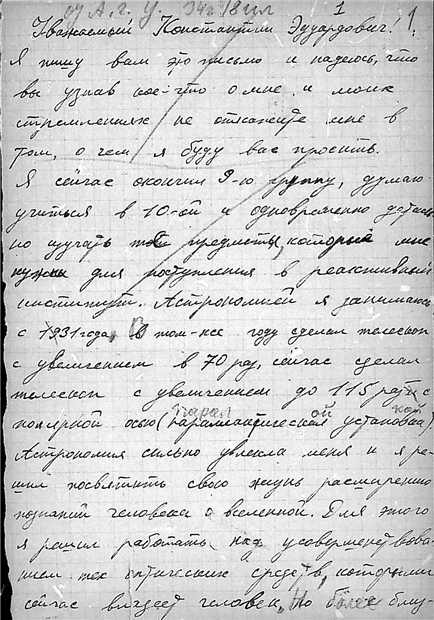 от А. г. У. 34г. 18 июл 1 1.
Уважаемый Константин Эдуардович!
Я пишу вам это письмо и надеюсь, что
вы узнав кое-что о мне и моих
стремлениях не откажите мне в
том, о чем я буду вас просить.
Я сейчас окончил 9-ю группу, думаю
учиться в 10-ой и одновременно деталь
но изучать те предметы, которые мне
нужны для поступления в реактивный
институт. Астрономией я занимаюсь
с 1931 года, В том-же году сделал телескоп
с увеличением в 70 раз, сейчас сделал
телескоп с увеличением до 115 раз с
полярной осью (параллактическая установка).
Астрономия сильно увлекла меня и я ре-
шил посвятить свою жизнь расширению
познаний человека о вселенной. Для этого
я решил работать над усовершенствова
нием тех оптических средств, которыми
сейчас владеет человек, Но более близ-